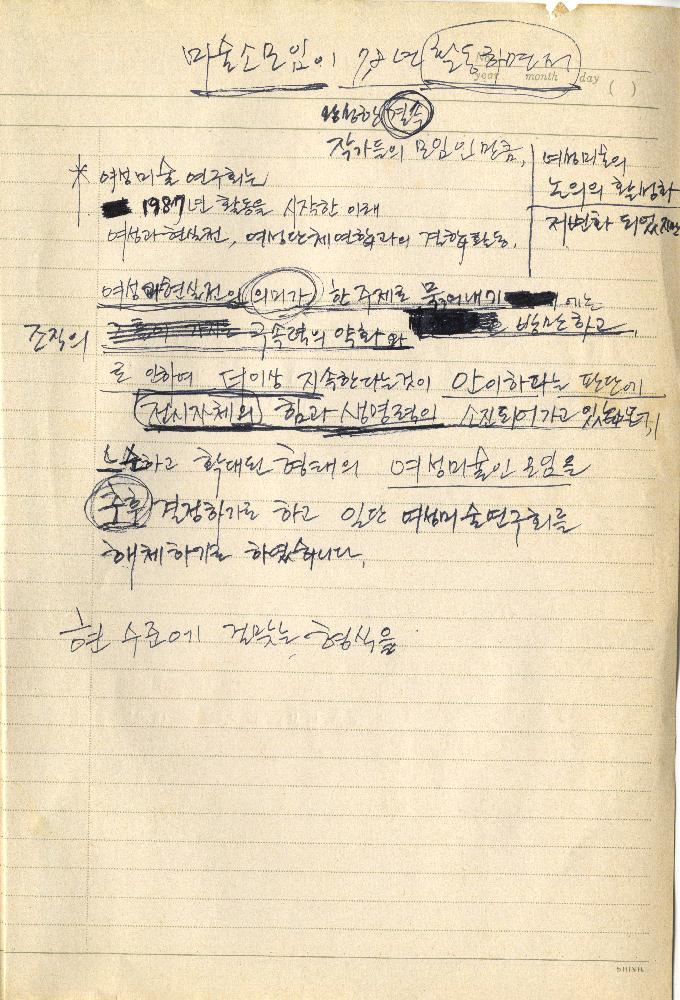 미술소모임이 7년 활동하면서
year month day ( )
왕성한 결속
작가들의 모임인만큼,
여성미술의
논의의 활성화
저변화 되었지만
* 여성미술 연구회는
1987년 활동을 시작한 이래
여성과 현실전, 여성단체연합과의 결합활동,
여성과 현실전의 의미가 한 주제로 묶어내기 에는
조직의 구속력의 약화와 방만하고,
로 인하여 더이상 지속한다는것이 안이하다는 판단에
전시자체의 힘과 생명력의 소진되어가고
느슨하고 확대된 형태의 여성미술인 모임을
추후 결정하기로 하고 일단 여성미술연구회를
해체하기로 하였습니다.
현 수준에 걸맞는 형식을